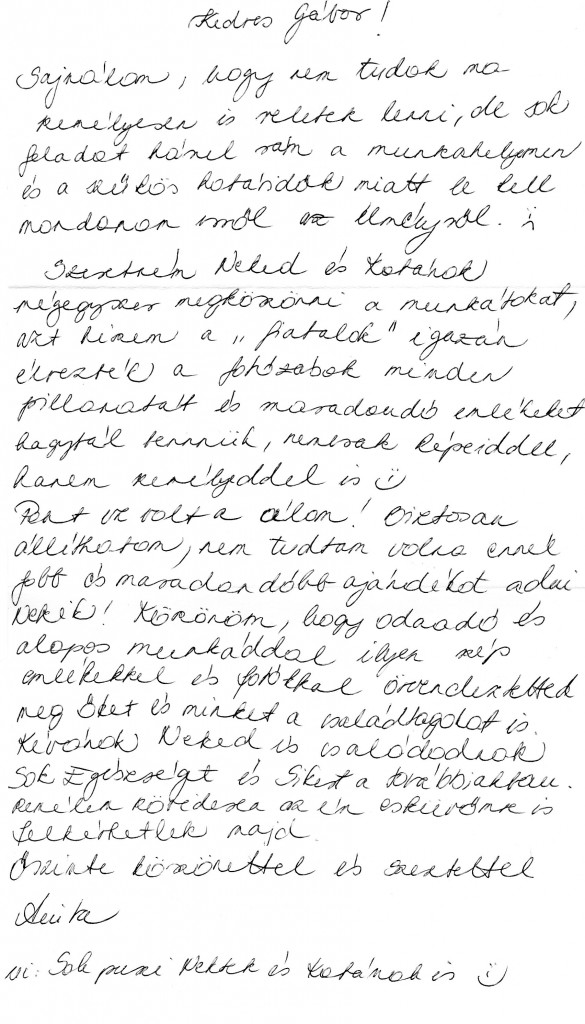 Kedves Gábor!
Sajnálom, hogy nem tudok ma
személyesen is veletek lenni, de sok
feladat hárul rám a munkahelyemen
és a szűkös határidők miatt le kell
mondanom erről az élményről. :(
Szeretném Neked és Katának
mégegyszer megköszönni a munkátokat,
azt hiszem a „fiatalok" igazán
élvezték a fotózások minden
pillanatát és maradandó emlékeket
hagytál bennük, nemcsak képeiddel,
hanem személyeddel is :)
Pont ez volt a álom! Biztosan
állíthatom, nem tudtam volna ennél
jobb és maradandóbb ajándékot adni
Nekik! Köszönöm, hogy odaadó és
alapos munkáddal ilyen szép
emlékekkel és fotókkal örvendeztetted
meg Őket és minket a családtagokat is.
Kívánok Neked és családodnak
Sok Egészséget és Sikert a továbbiakban.
Remélem követdesen az én eskűvőmre is
felkérhetlek majd.
Őszinte köszönettel és szeretettel
Anita
Ui: Sok puszi Nektek és Katának is :)